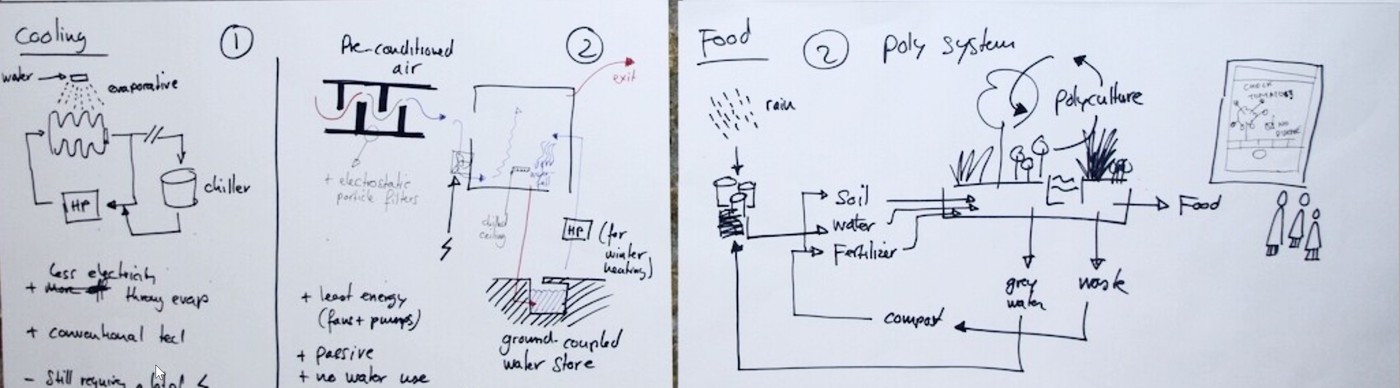 Cooling
1
water
evaporative
chiller
HP
less electricity
+ through evap
+ conventional tecl
- Still requiring a
Pre-conditioned
air
2
exit
+ electrostatic
particle filters
chilled
ceiling
HP
(for
winter
heating)
+ least energy
(fans + pumps)
+ passive
+ no water use
ground-coupled
water store
Food
2
Poly system
rain
polyculture
Soil
water
Fertilizer
Food
grey
water
waste
compost
CHECK
TOMATOES